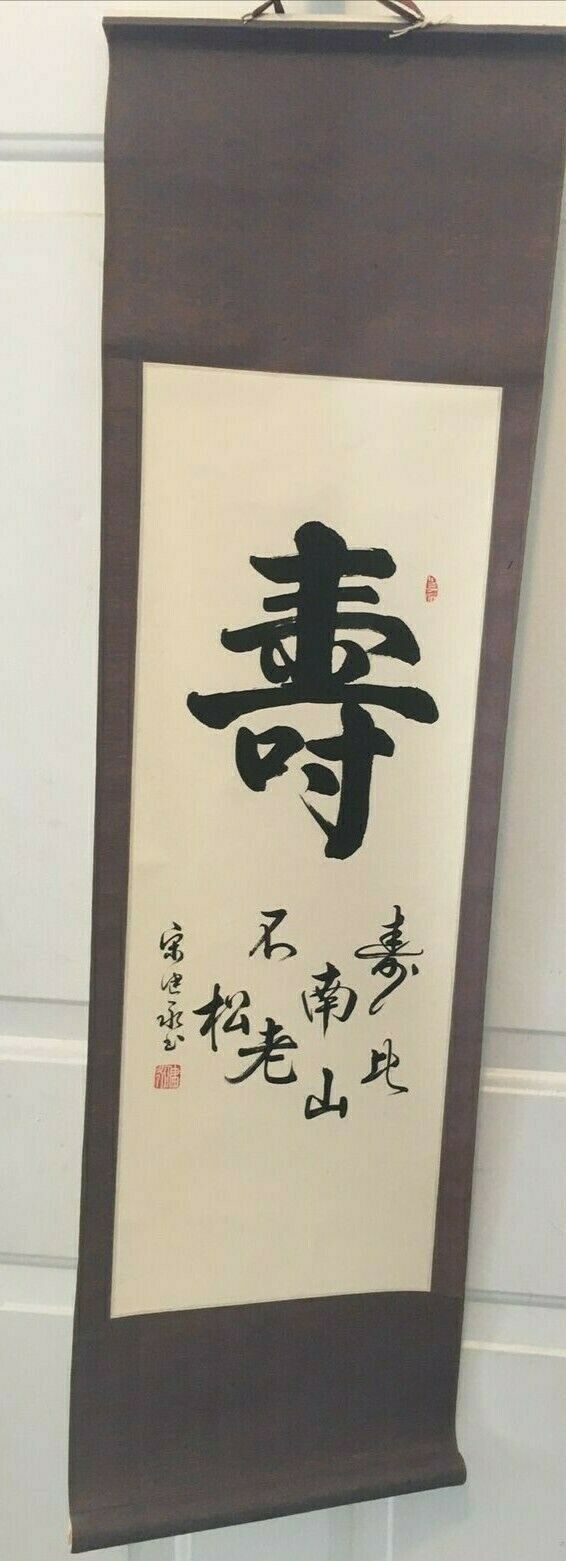 壽
寿比
南山
不老
松
宋建永书